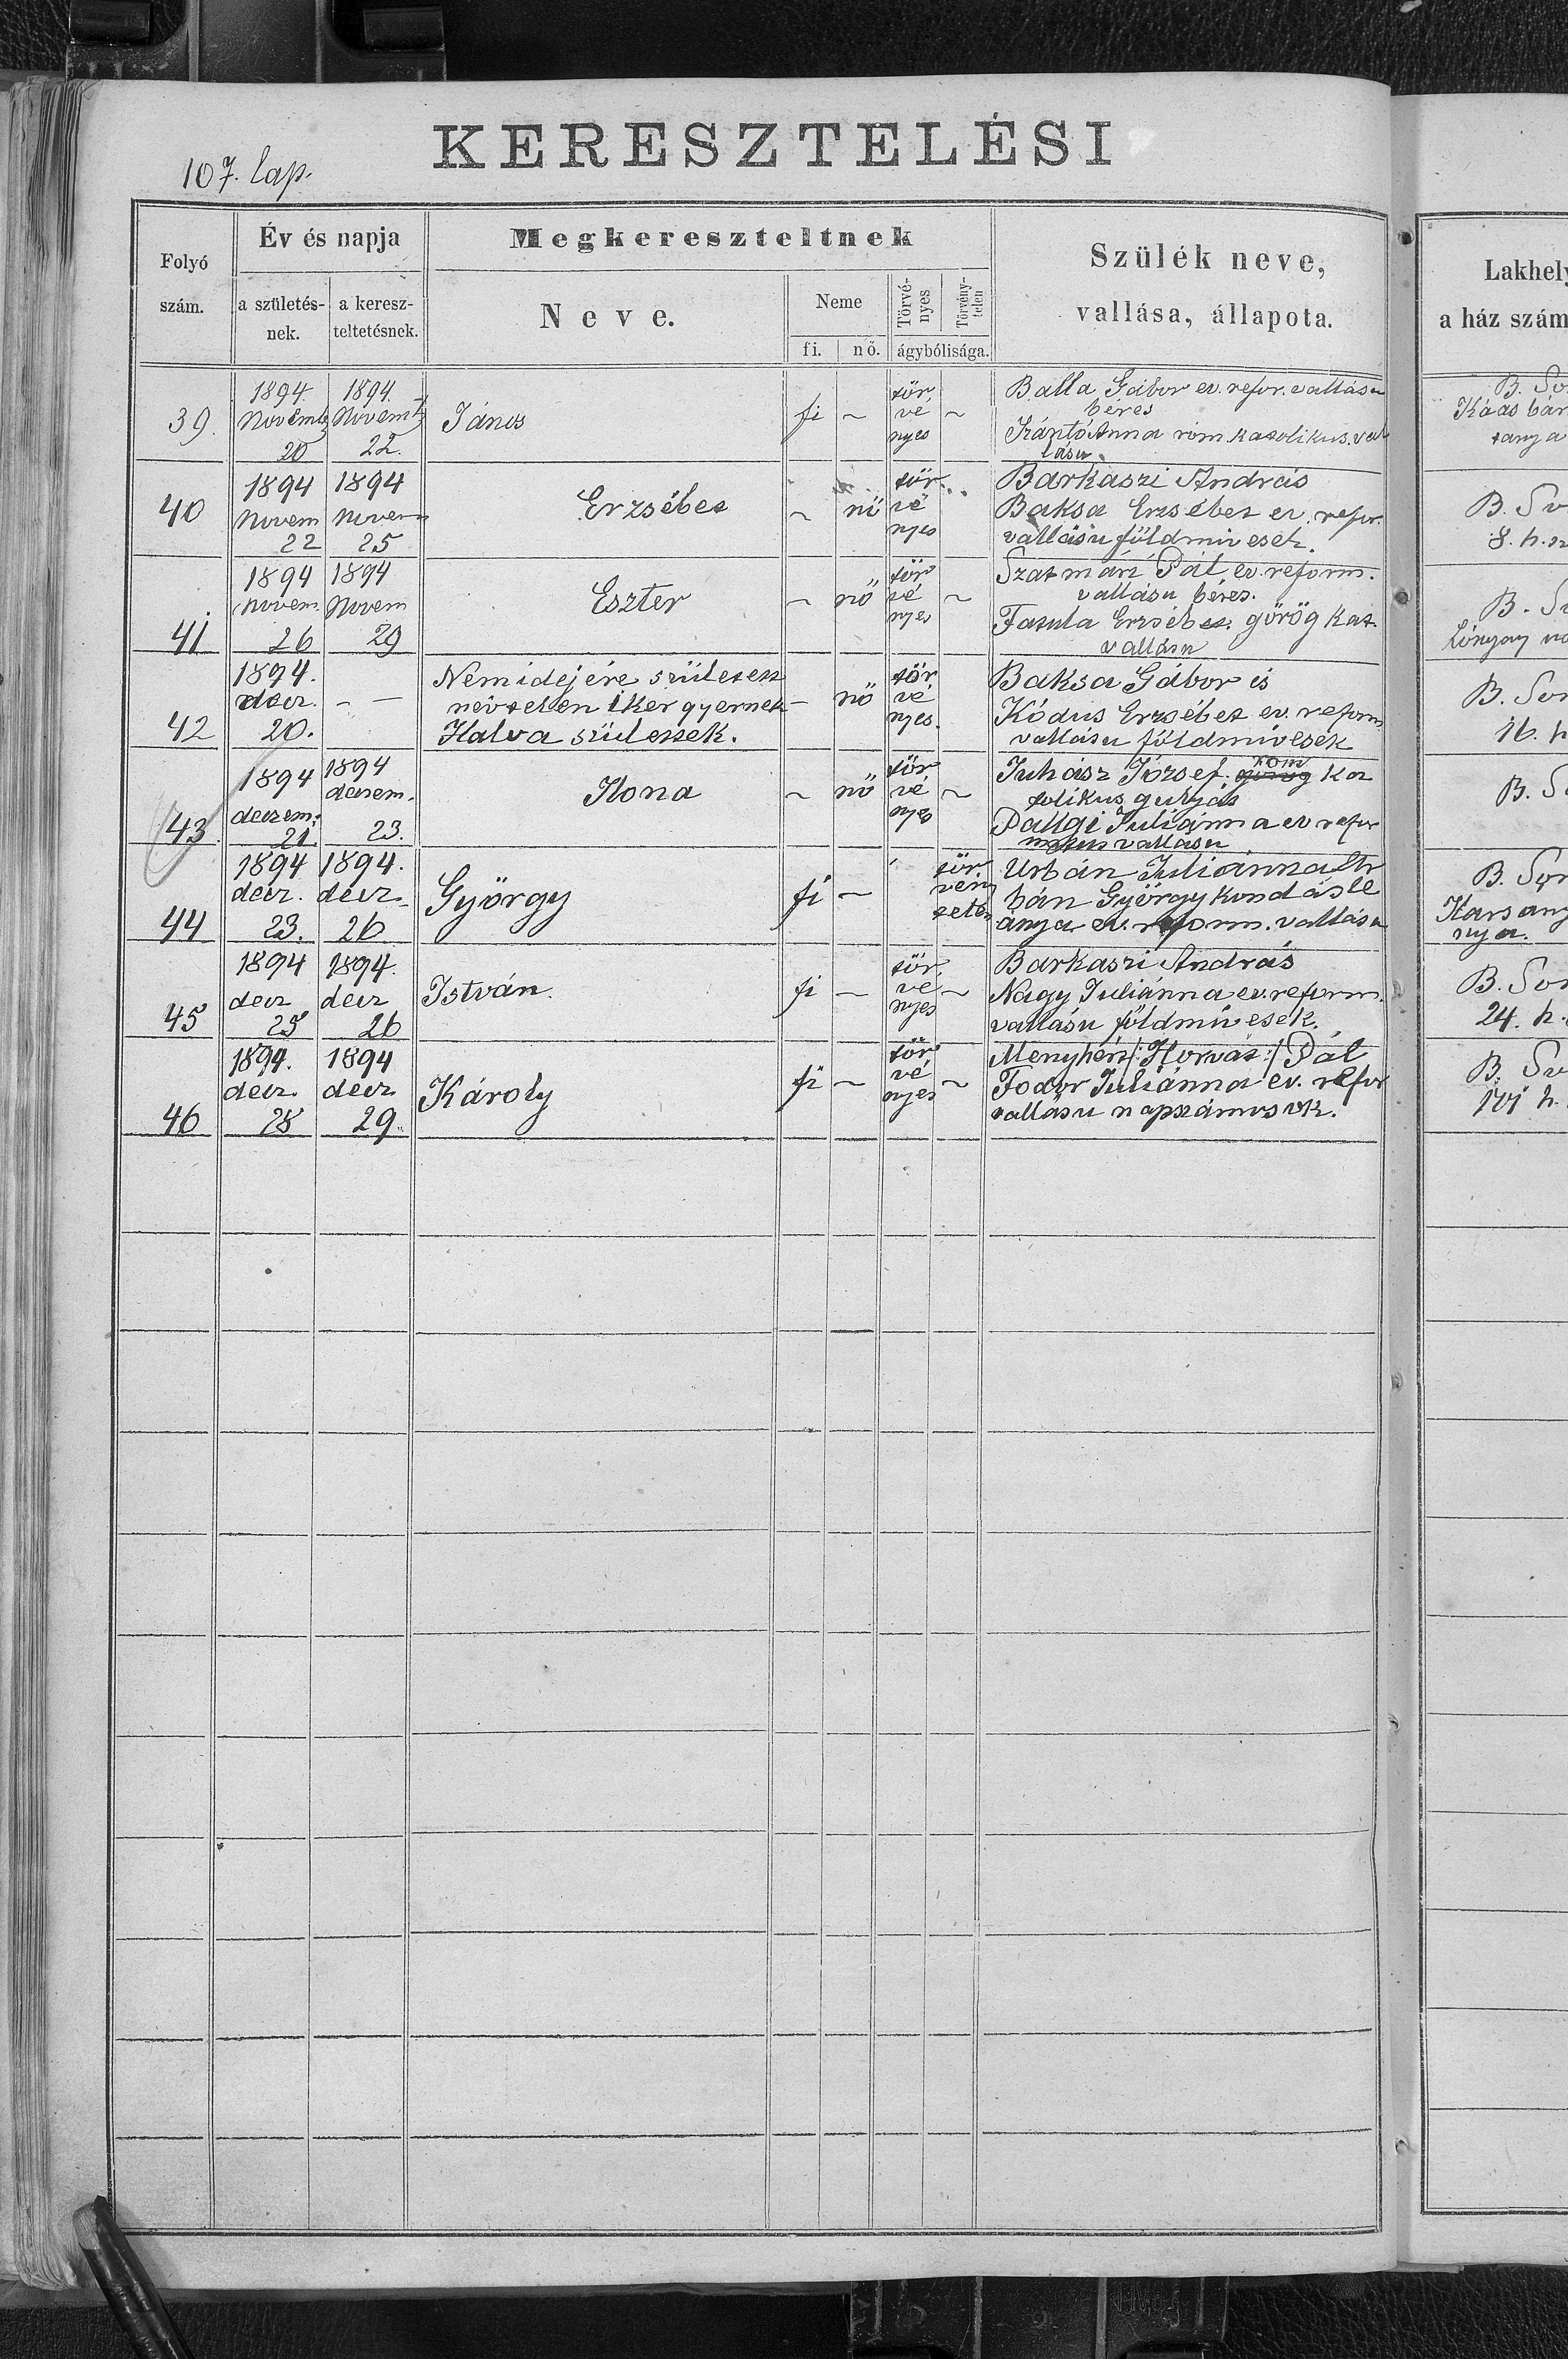 107. lap.
KERESZTELÉSI
Folyó szám.
Év és napja
a születés-nek.
a keresz-teltetésnek.
Megkereszteltnek
Neve.
Neme
fi.
nő.
Törvé-nyes
Törvény-telen
ágybólisága.
Szülék neve,
vallása, állapota.
Lakhely
a ház szám
39.
1894.
Novemb
20
1894.
Novemb
22.
János
fi
~
tör
vé
nyes
~
Balla Gábor ev. refor. vallásu
béres
Szántó Anna róm katolikus. val
lásu
Káás bár
tanya
40
1894
Novem
22
1894
Novem
25
Erzsébet
~
nő
tör
vé
nyes
Barkaszi András
Baksa Erzsébet ev. refor.
vallásu földmivesek.
8. h. sz
41
1894
Novem.
26
1894
Novem
29
Eszter
~
nő
tör
vé
nyes
~
Szatmári Pál ev. reform.
vallásu béres.
Fatula Erzsébet. görög kat.
vallásu
Lónyay
42
1894.
decz.
20.
- -
Nem idejére született
névtelen iker gyermek
Halva születtek.
-
nő
tör
vé
nyes.
Baksa Gábor és
Kódus Erzsébet ev. reform
vallásu földmivesek
B. Som
16. h
43.
1894
deczem.
21.
1894
decsem.
23.
Ilona
~
nő
tör
vé
nyes
~
Juhász József. görög róm ka
tolikus gulyás
Pallgi Juliánna ev refor
mátus vallásu
44
1894
decz.
23.
1894.
decz.
26
György
fi
~
tör
vény
telen
Urbán Juliánna Ur
bán György kondás le
ánya ev. reform. vallásu
B. Som
Harsány
nya.
45
1894
decz
25
1894.
decz
26
István.
fi
~
tör
vé
nyes
~
Barkaszi András
Nagy Juliánna ev. reform.
vallásu földmivesek.
B. Som
24. h.
46
1894.
decz
28
1894
decz
29.
Károly
fi
~
tör
vé
nyes
~
Menyhért /: Horvát :/ Pál
Fodor Juliánna ev. refor
vallásu napszámosok.
101 h.